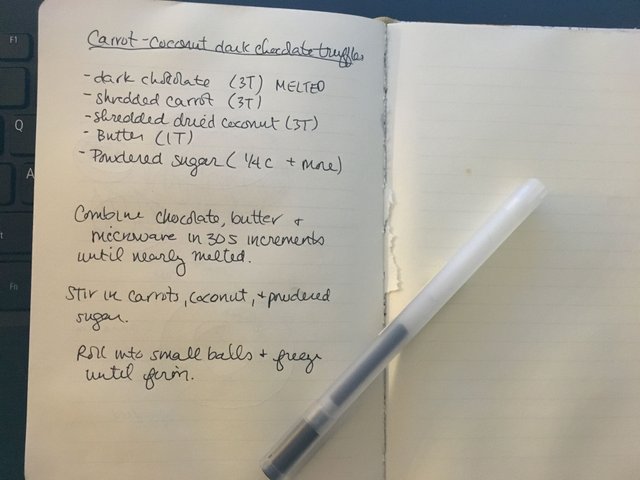 Carrot-coconut dark chocolate truffles
- dark chocolate (3T) MELTED
- shredded carrot (3T)
- shredded dried coconut (3T)
- Butter (1T)
- Powdered sugar (1/4 c + more)
Combine chocolate, butter +
microwave in 30s increments
until nearly melted.
Stir in carrots, coconut, + powdered
sugar.
Roll into small balls + freeze
until firm.
F1
Q
A
Fn